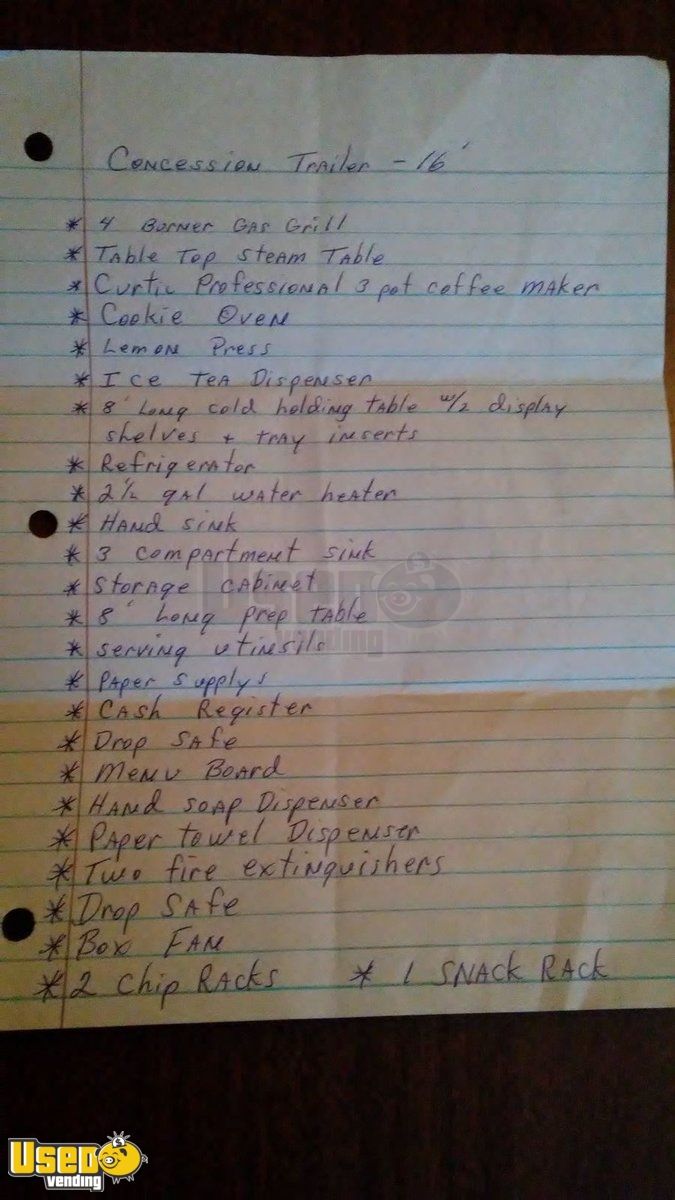 Concession Trailer - 16'
* 4 Burner Gas Grill
* Table Top Steam Table
* Curtis Professional 3 pot coffee maker
* Cookie Oven
* Lemon Press
* Ice Tea Dispenser
* 8' Long cold holding table w/2 display
shelves + tray inserts
* Refrigerator
* 2 1/2 gal water heater
* Hand sink
* 3 compartment sink
* Storage cabinet
* 8' Long prep table
* Serving utinsils
* Paper supplys
* Cash Register
* Drop Safe
* Menu Board
* Hand soap Dispenser
* Paper towel Dispenser
* Two fire extinguishers
* Drop Safe
* Box Fan
* 2 Chip Racks * 1 Snack Rack
Used
vending
USED
vending